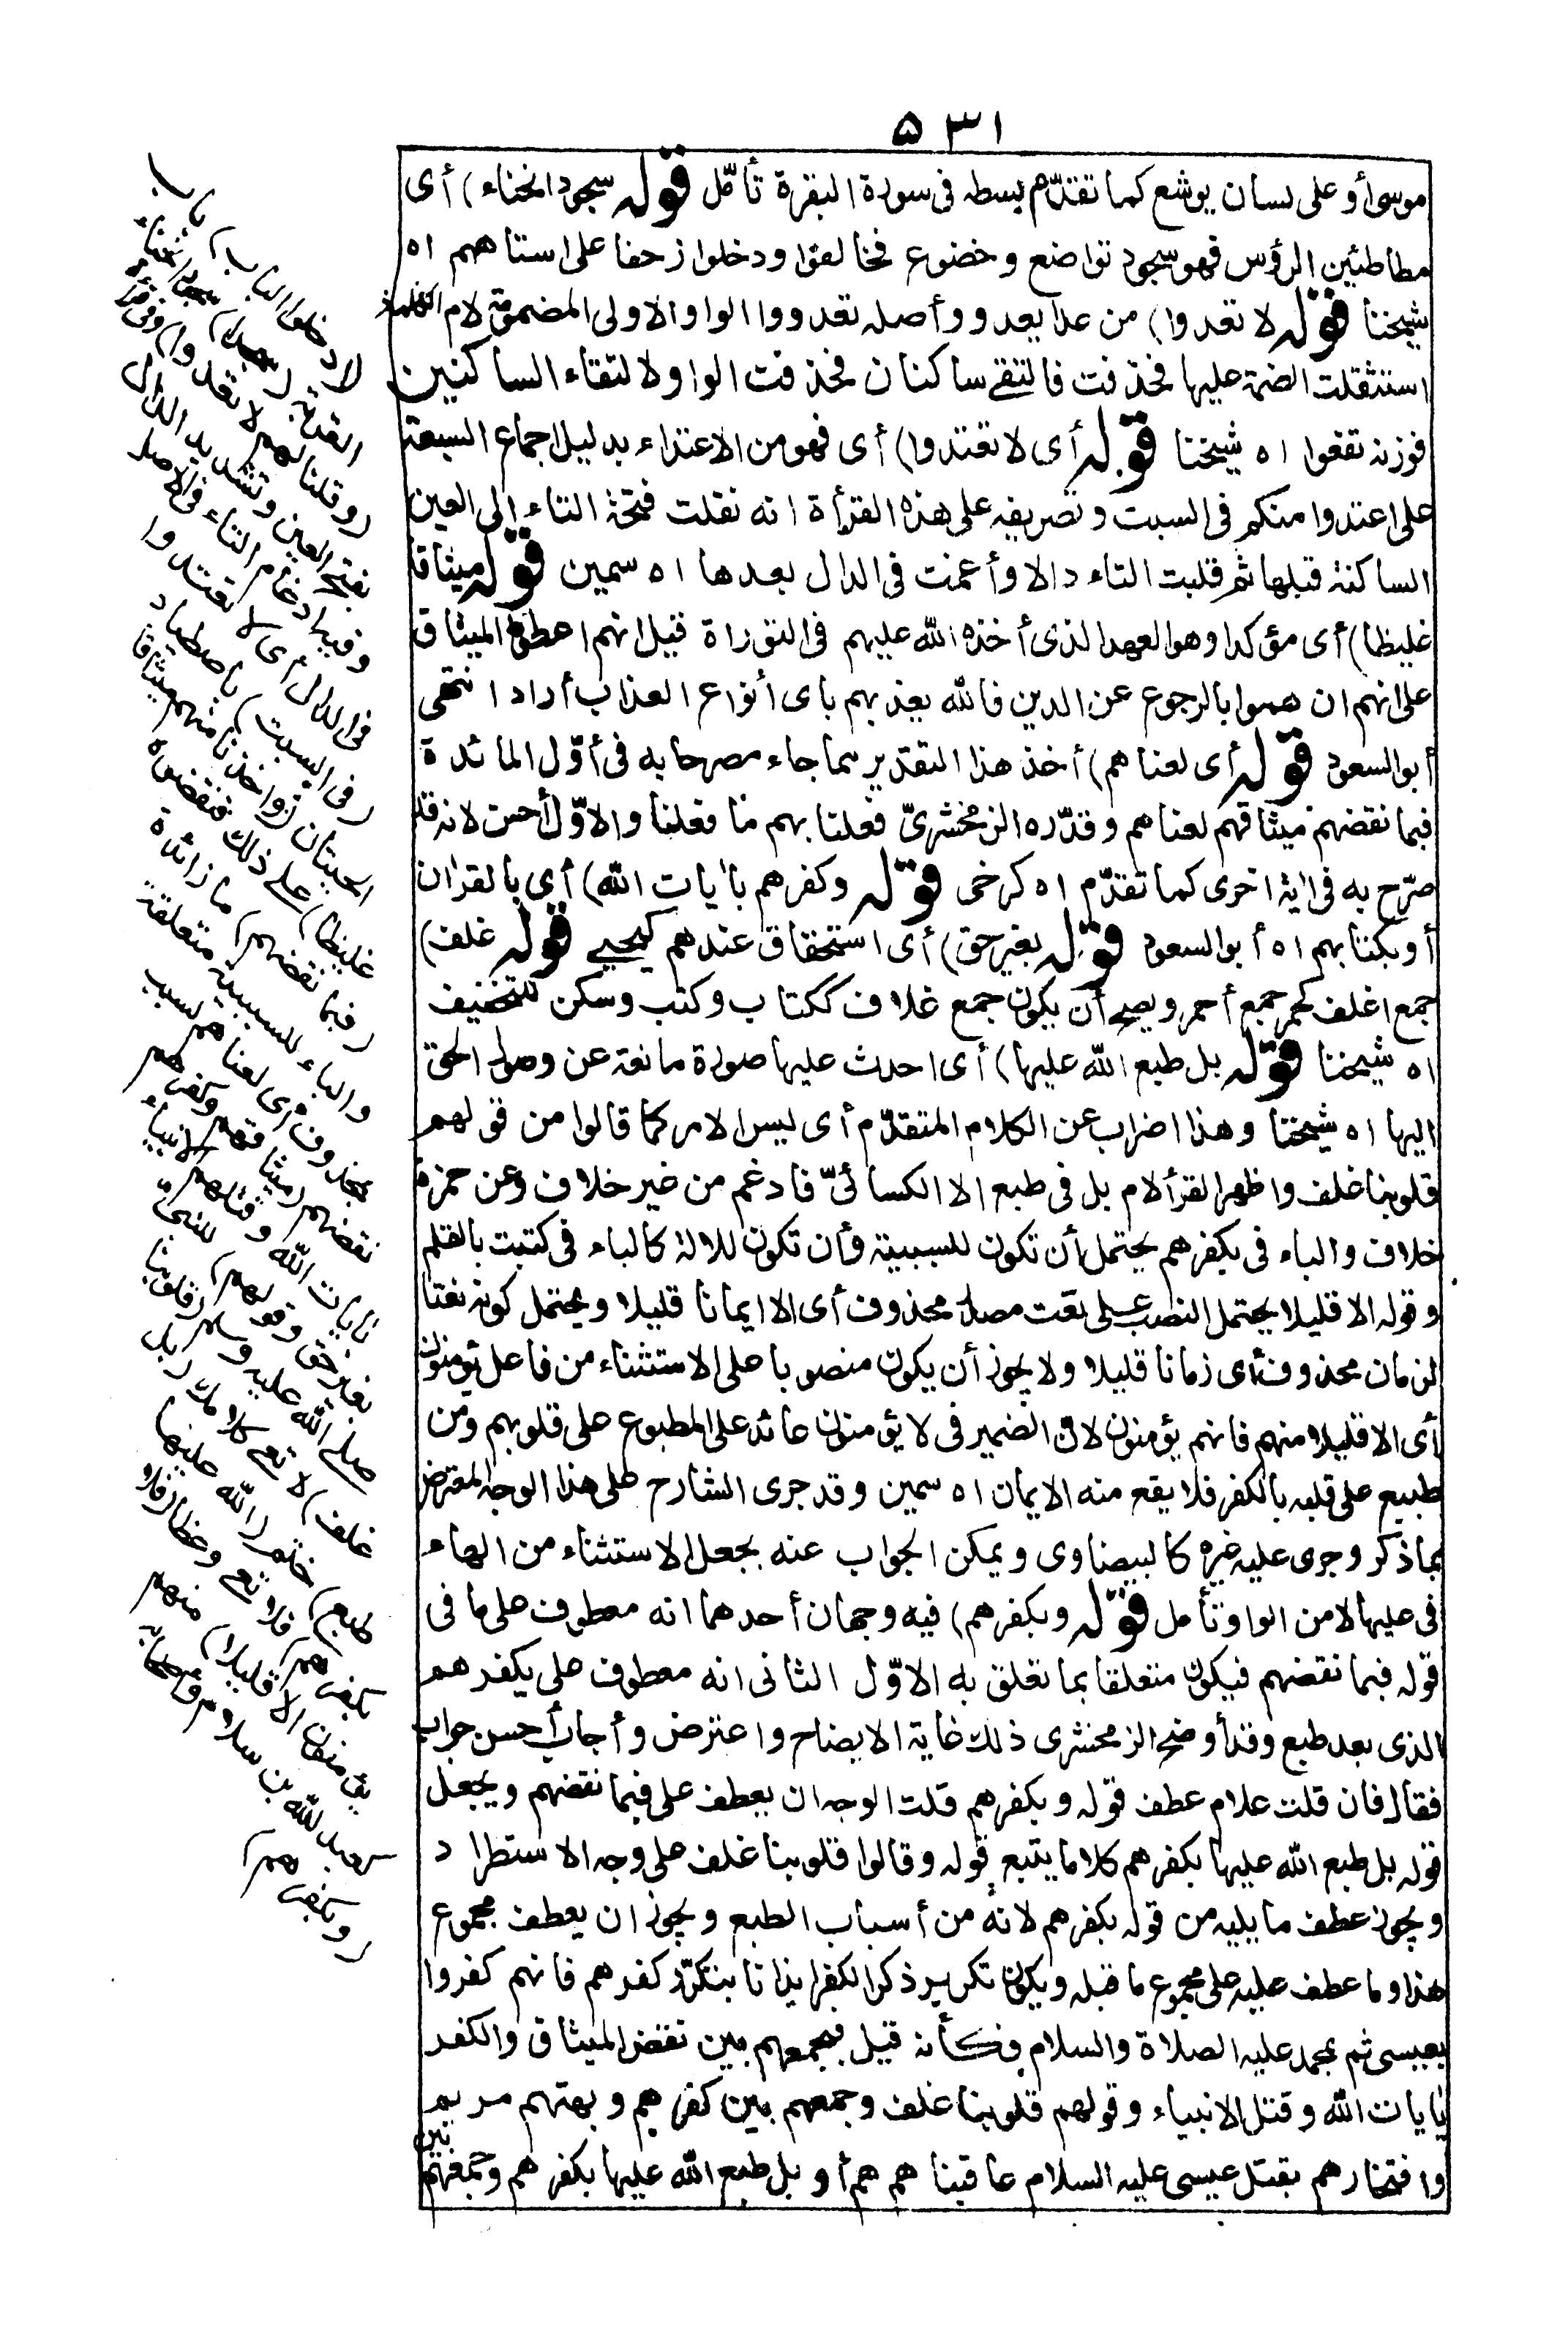 ٥٣١
موسى أو على لسان يوشع كما تقدّم بسطه فى سورة البقرة تأمّل قوله سجود انحناء) أى
مطاطئين الرؤس فهو سجود تواضع وخضوع فخالفوا ودخلوا زحفا على استاههم اه
شيخنا قوله لا تعدوا) من عدا يعدو وأصله تعدووا الواو الاولى المضمومة لام الكلمة
استثقلت الضمة عليها فحذفت فالتقى ساكنان فحذفت الواو لالتقاء الساكنين
فوزنه تفعوا اه شيخنا قوله أى لا تعتدوا) أى فهو من الاعتداء بدليل اجماع السبعة
على اعتدوا منكم فى السبت وتصريفه على هذه القرأة انه نقلت فتحة التاء الى العين
الساكنة قبلها ثم قلبت التاء دالا وأدغمت فى الدال بعدها اه سمين قوله ميثاقا
غليظا) أى مؤكدا وهو العهد الذى أخذه الله عليهم فى التوراة قيل انهم اعطوا الميثاق
على انهم ان هموا بالرجوع عن الدين فالله يعذبهم باى أنواع العذاب أراد انتهى
أبو السعود قوله أى لعناهم) أخذ هذا التقدير مما جاء مصرحا به فى أوّل المائدة
فبما نقضهم ميثاقهم لعناهم وقدّره الزمخشرىّ فعلنا بهم ما فعلنا والاوّل أحسن لانه قد
صرّح به فى اٰية اخرى كما تقدّم اه كرخى قوله وكفرهم باٰيات الله) أى بالقراٰن
أو بكتابهم اه أبو السعود قوله بغير حق) أى استحقاق عندهم كيحيى قوله غلف)
جمع اغلف كحمر جمع أحمر ويصح أن يكون جمع غلاف ككتاب وكتب وسكن للتخفيف
اه شيخنا قوله بل طبع الله عليها) أى احدث عليها صورة مانعة عن وصول الحق
اليها اه شيخنا وهذا اضراب عن الكلام المتقدّم أى ليس الامر كما قالوا من قولهم
قلوبنا غلف واظهر القرأ لام بل فى طبع الا الكسائىّ فادغم من غير خلاف وعن حمزة
خلاف والباء فى بكفرهم يحتمل أن تكون للسببية وأن تكون للالة كالباء فى كتبت بالقلم
وقوله الا قليلا يحتمل النصب على نعت مصدر محذوف أى الا ايمانا قليلا ويحتمل كونه نعتا
لزمان محذوف أى زمانا قليلا ولا يجوز أن يكون منصوبا على الاستثناء من فاعل يؤمنون
أى الا قليلا منهم فانهم يؤمنون لان الضمير فى لا يؤمنون عائد على المطبوع على قلوبهم ومن
طبع على قلبه بالكفر فلا يقع منه الايمان اه سمين وقد جرى الشارح على هذا الوجه المعترض
بما ذكر وجرى عليه غيره كالبيضاوى ويمكن الجواب عنه بجعل الاستثناء من الهاء
فى عليها لا من الواو تأمل قوله وبكفرهم) فيه وجهان أحدهما انه معطوف على ما فى
قوله فبما نقضهم فيكون متعلقا بما تعلق به الاوّل الثانى انه معطوف على بكفرهم
الذى بعد طبع وقد أوضح الزمخشرى ذلك غاية الايضاح واعترض وأجاب أحسن جواب
فقال فان قلت علام عطف قوله وبكفرهم قلت الوجه ان يعطف على فبما نقضهم ويجعل
قوله بل طبع الله عليها بكفرهم كلاما يتبع قوله وقالوا قلوبنا غلف على وجه الاستطراد
ويجوز عطف ما يليه من قوله بكفرهم لانه من أسباب الطبع ويجوز ان يعطف مجموع
هذا وما عطف عليه على مجموع ما قبله ويكون تكرير ذكر الكفر ايذانا بتكرّر كفرهم فانهم كفروا
بعيسى ثم بمحمد عليه الصلاة والسلام فكأنه قيل فبجمعهم بين نقض الميثاق والكفر
باٰيات الله وقتل الانبياء وقولهم قلوبنا غلف وجمعهم بين كفرهم وبهتهم مريم
وافتخارهم بقتل عيسى عليه السلام عاقبناهم هم أو بل طبع الله عليها بكفرهم وجمعهم بين
لا دخلوا الباب) باب
القرية (سجدا) سجود انحناء
(وقلنا لهم لا تعدوا) وفى قرأة
بفتح العين وتشديد الدال
وفيه ادغام التاء فى الاصل
فى الدال أى لا تعتدوا
(فى السبت) باصطياد
الحيتان (وأخذنا منهم ميثاقا
غليظا) على ذلك فنقضوه
(فبما نقضهم) ما زائدة
والباء للسببية متعلقة
بمحذوف أى لعناهم بسبب
نقضهم (ميثاقهم وكفرهم
باٰيات الله وقتلهم الانبياء
بغير حق وقولهم) للنبىّ
صلى الله عليه وسلم (قلوبنا
غلف) لا تعى كلامك (بل
طبع) ختم (الله عليها
بكفرهم) فلا تعى وعظا (فلا
يؤمنون الا قليلا) منهم
كعبد الله بن سلام وأصحابه
(وبكفرهم)